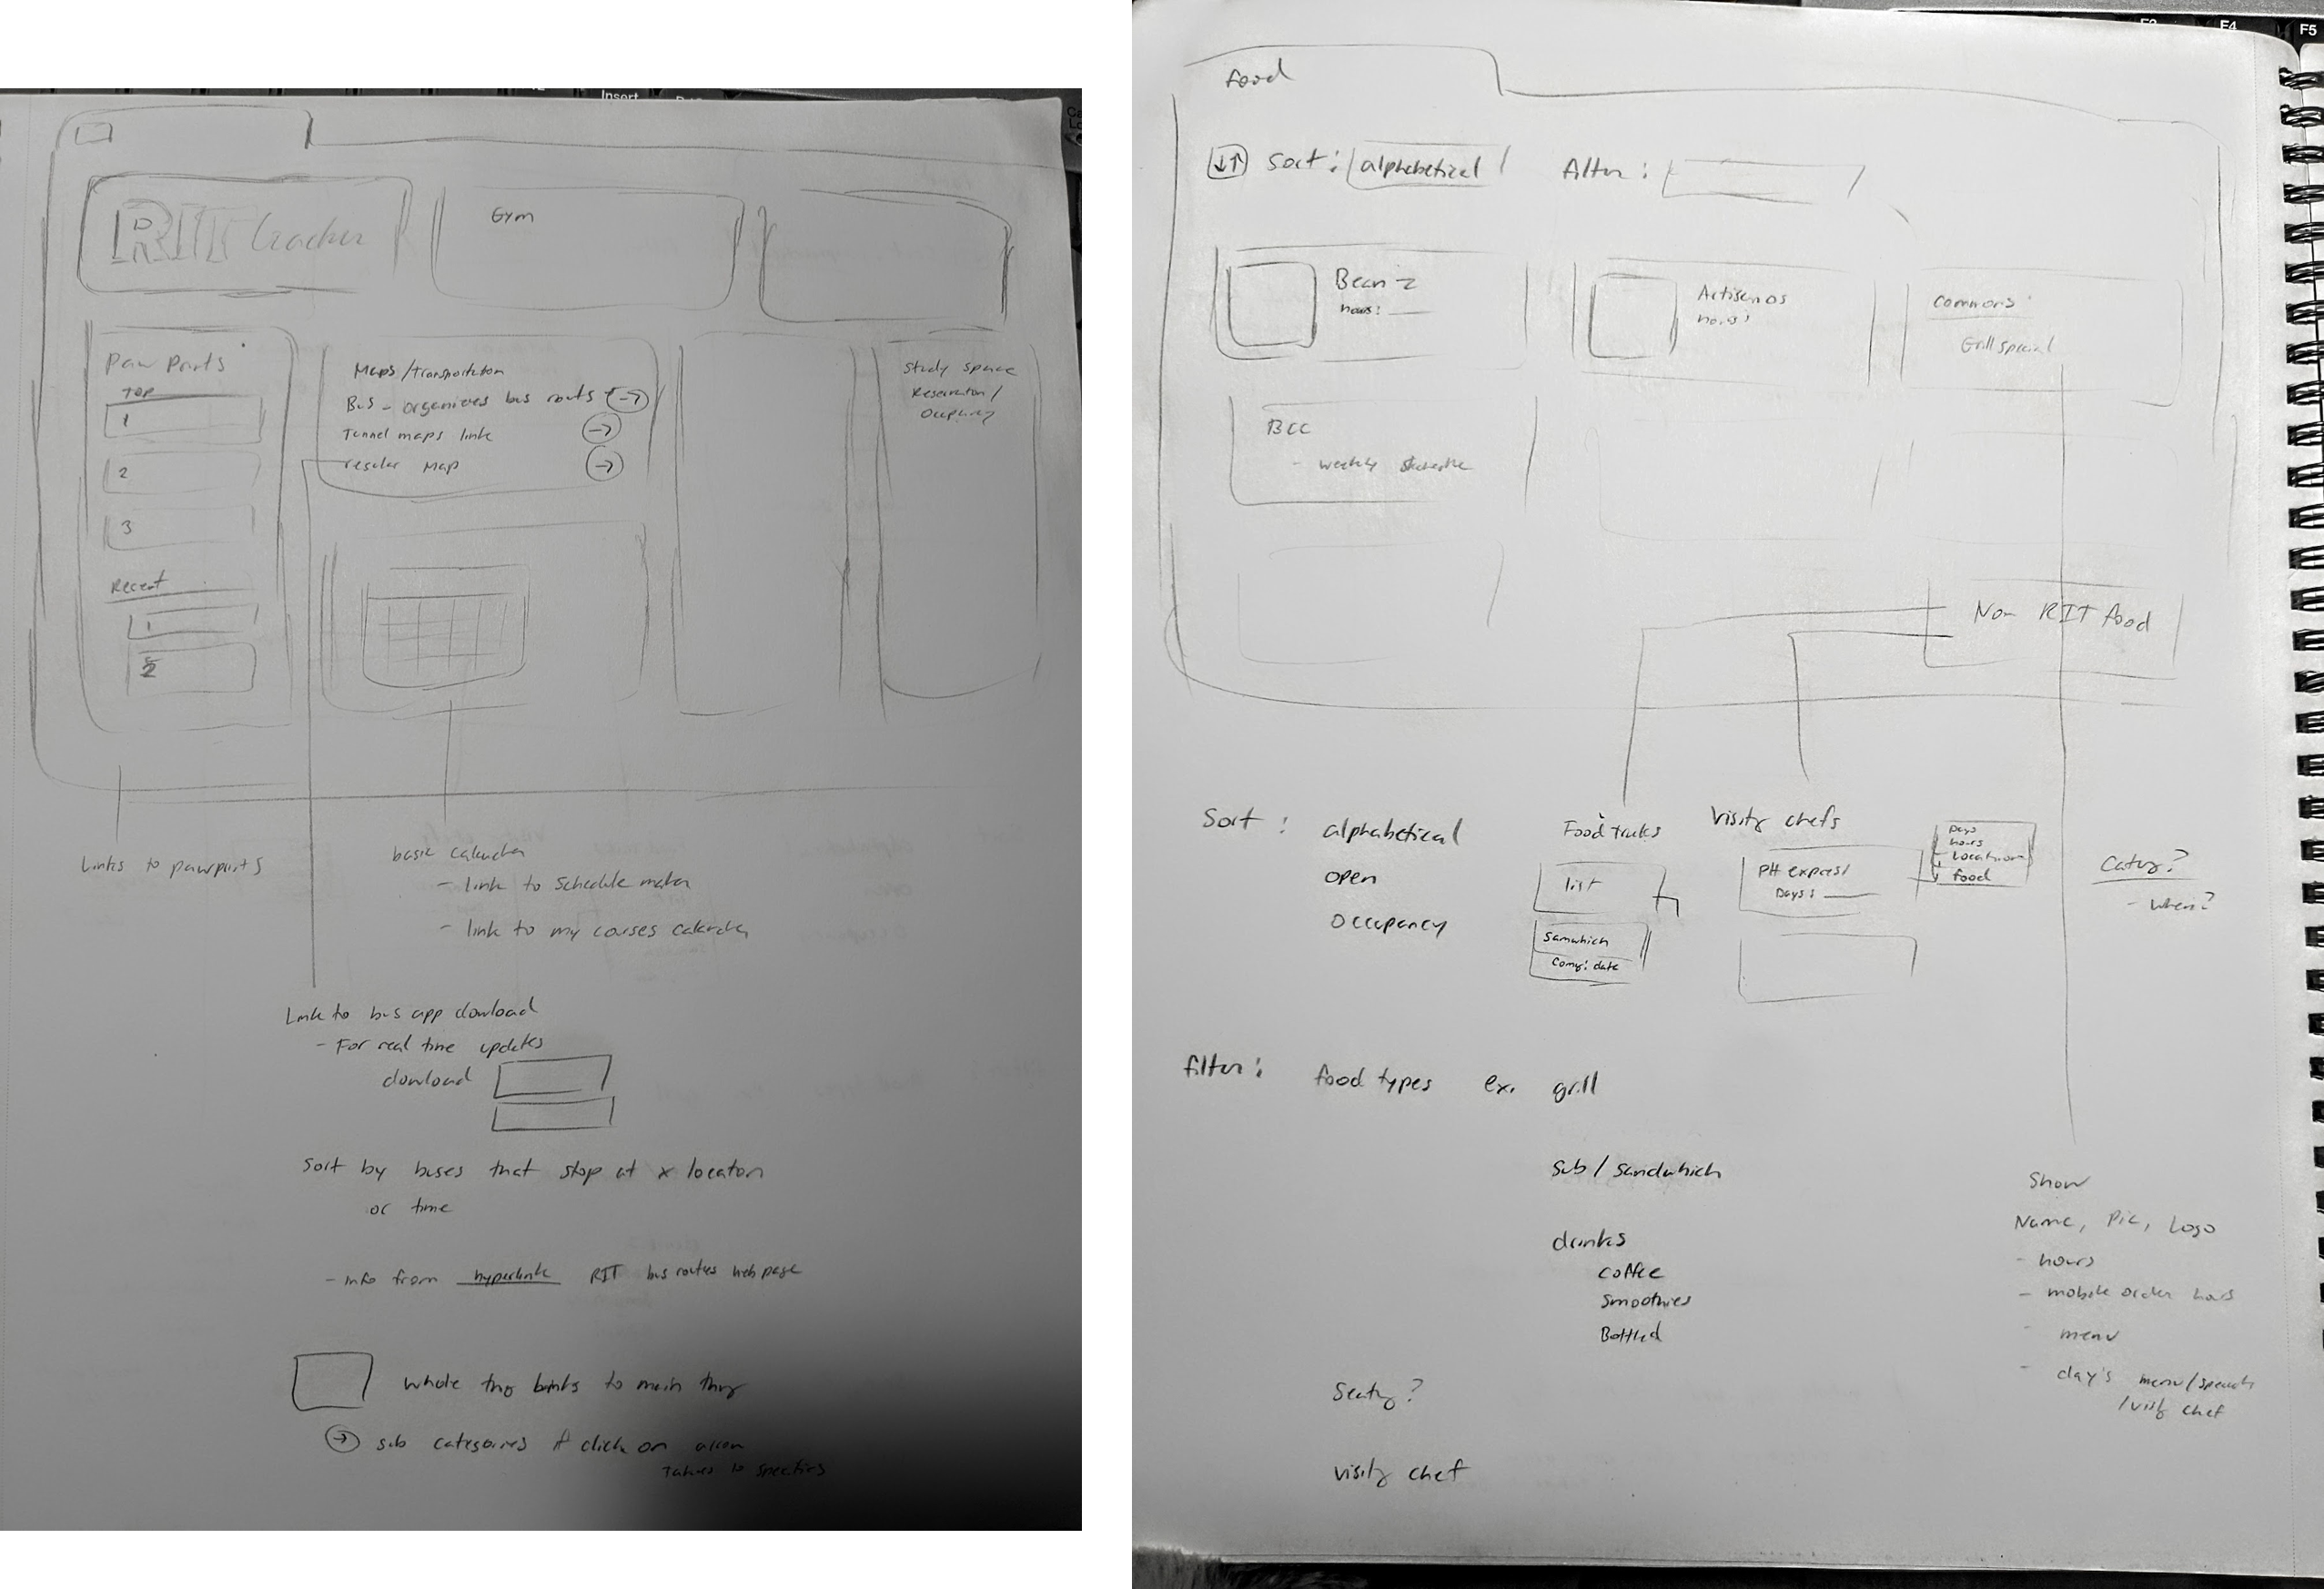 Insert
RIT tracker
Gym
Paw Prints
TOP
1
2
3
Recent
1
2
Maps/transportation
Bus - organizes bus routs
Tunnel maps link
regular map
Study space
Reservation/
Occupancy
Links to pawprints
basic calender
- link to schedule maker
- link to my courses calender
Link to bus app download
- For real time updates
download
Sort by buses that stop at x location
or time
- info from hyperlink RIT bus routes web page
Whole thing to main thing
sub categories if click on arrow
Takes to specifics
F3
F4
F5
Food
Sort: alphabetical
Filter:
Beanz
hours:
Artisanos
hours:
Commons
Grill special
BCC
- weekly
Non RIT food
Sort:
alphabetical
open
Occupancy
Food trucks
list
Samwhich
Coming: date
Visiting chefs
PH express/
Days:
Days
hours
Location
food
Catering?
- When?
filter:
food types ex. grill
sub/sandwhich
drinks
coffee
Smoothies
Bottled
Seating?
visiting chef
Show
Name, Pic, Logo
- hours
- mobile order hours
- menu
- day's menu/specials
/visiting chef